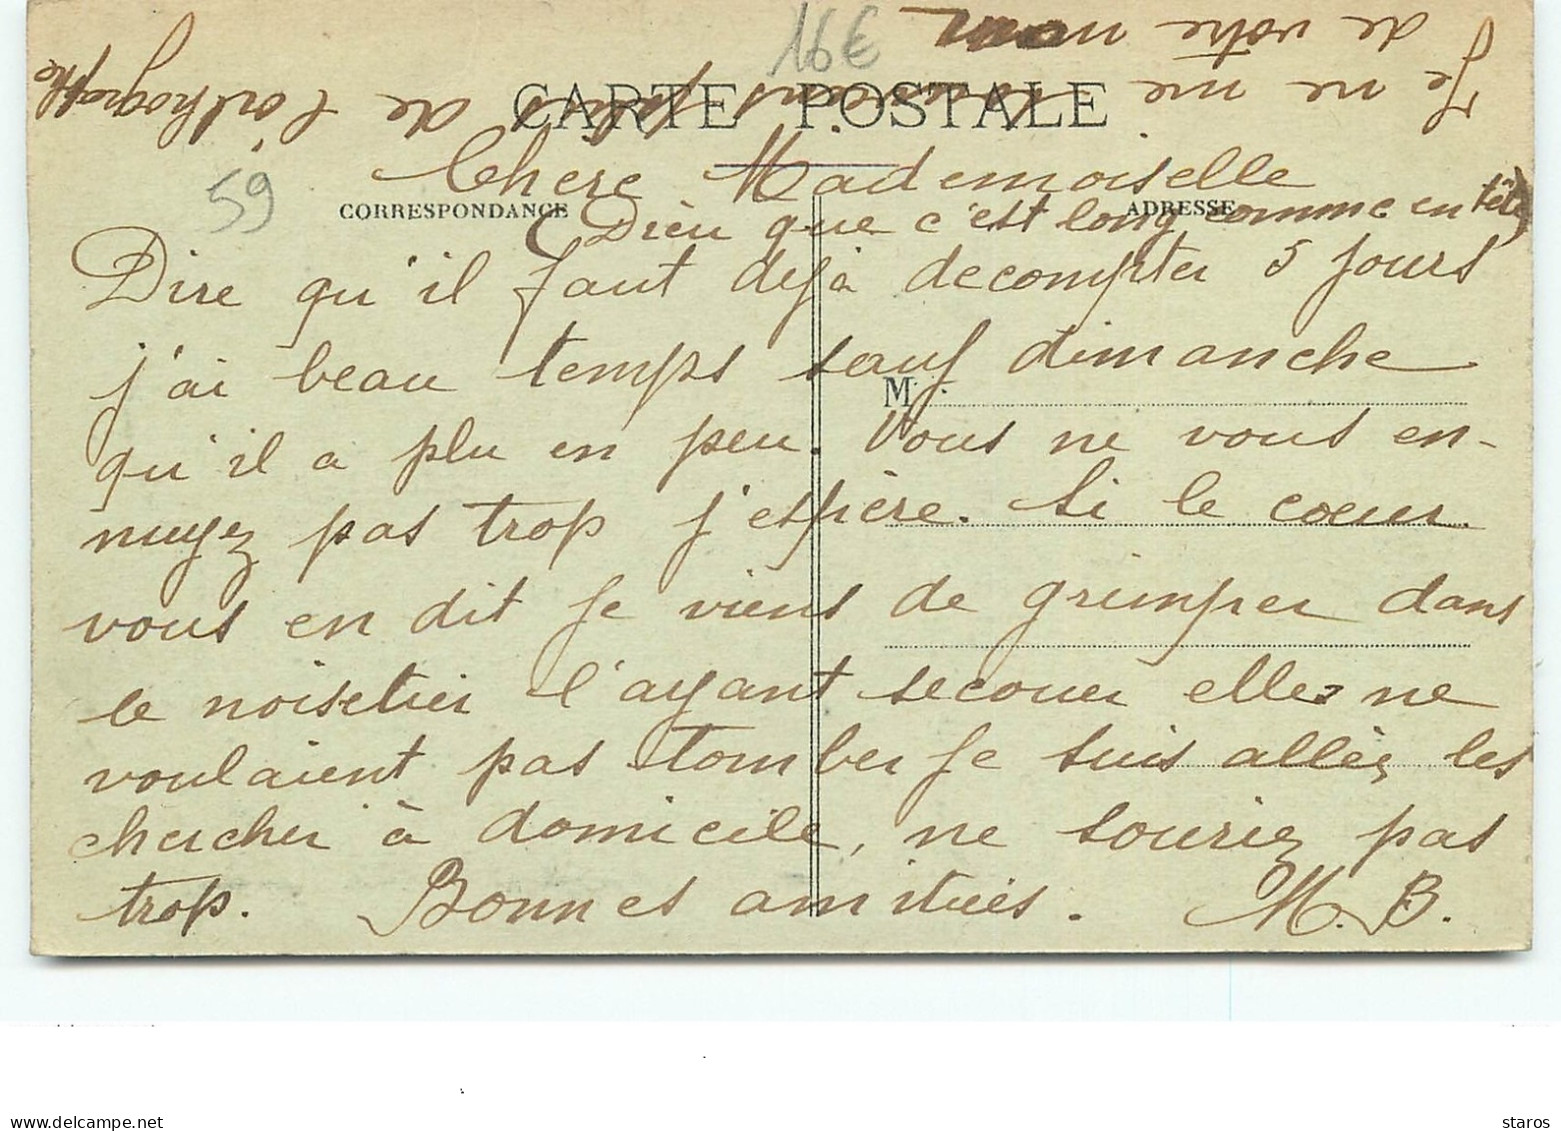 16€
CARTE POSTALE
59
CORRESPONDANCE
ADRESSE
M
Chere Mademoiselle
(Dieu que c'est long comme en tête)
Dire qu'il faut dejà decompter 5 jours
j'ai beau temps sauf dimanche
qu'il a plu en peu. Vous ne vous en-
nuyez pas trop j'espière. Si le coeur
vous en dit je viens de grimper dans
le noisetier l'ayant secouer elles ne
voulaient pas tomber je suis allée les
chercher à domicile, ne souriez pas
trop. Bonnes amitiés. M. B.
Je ne me souviens plus de l'orthographe
de votre nom
www.delcampe.net
staros